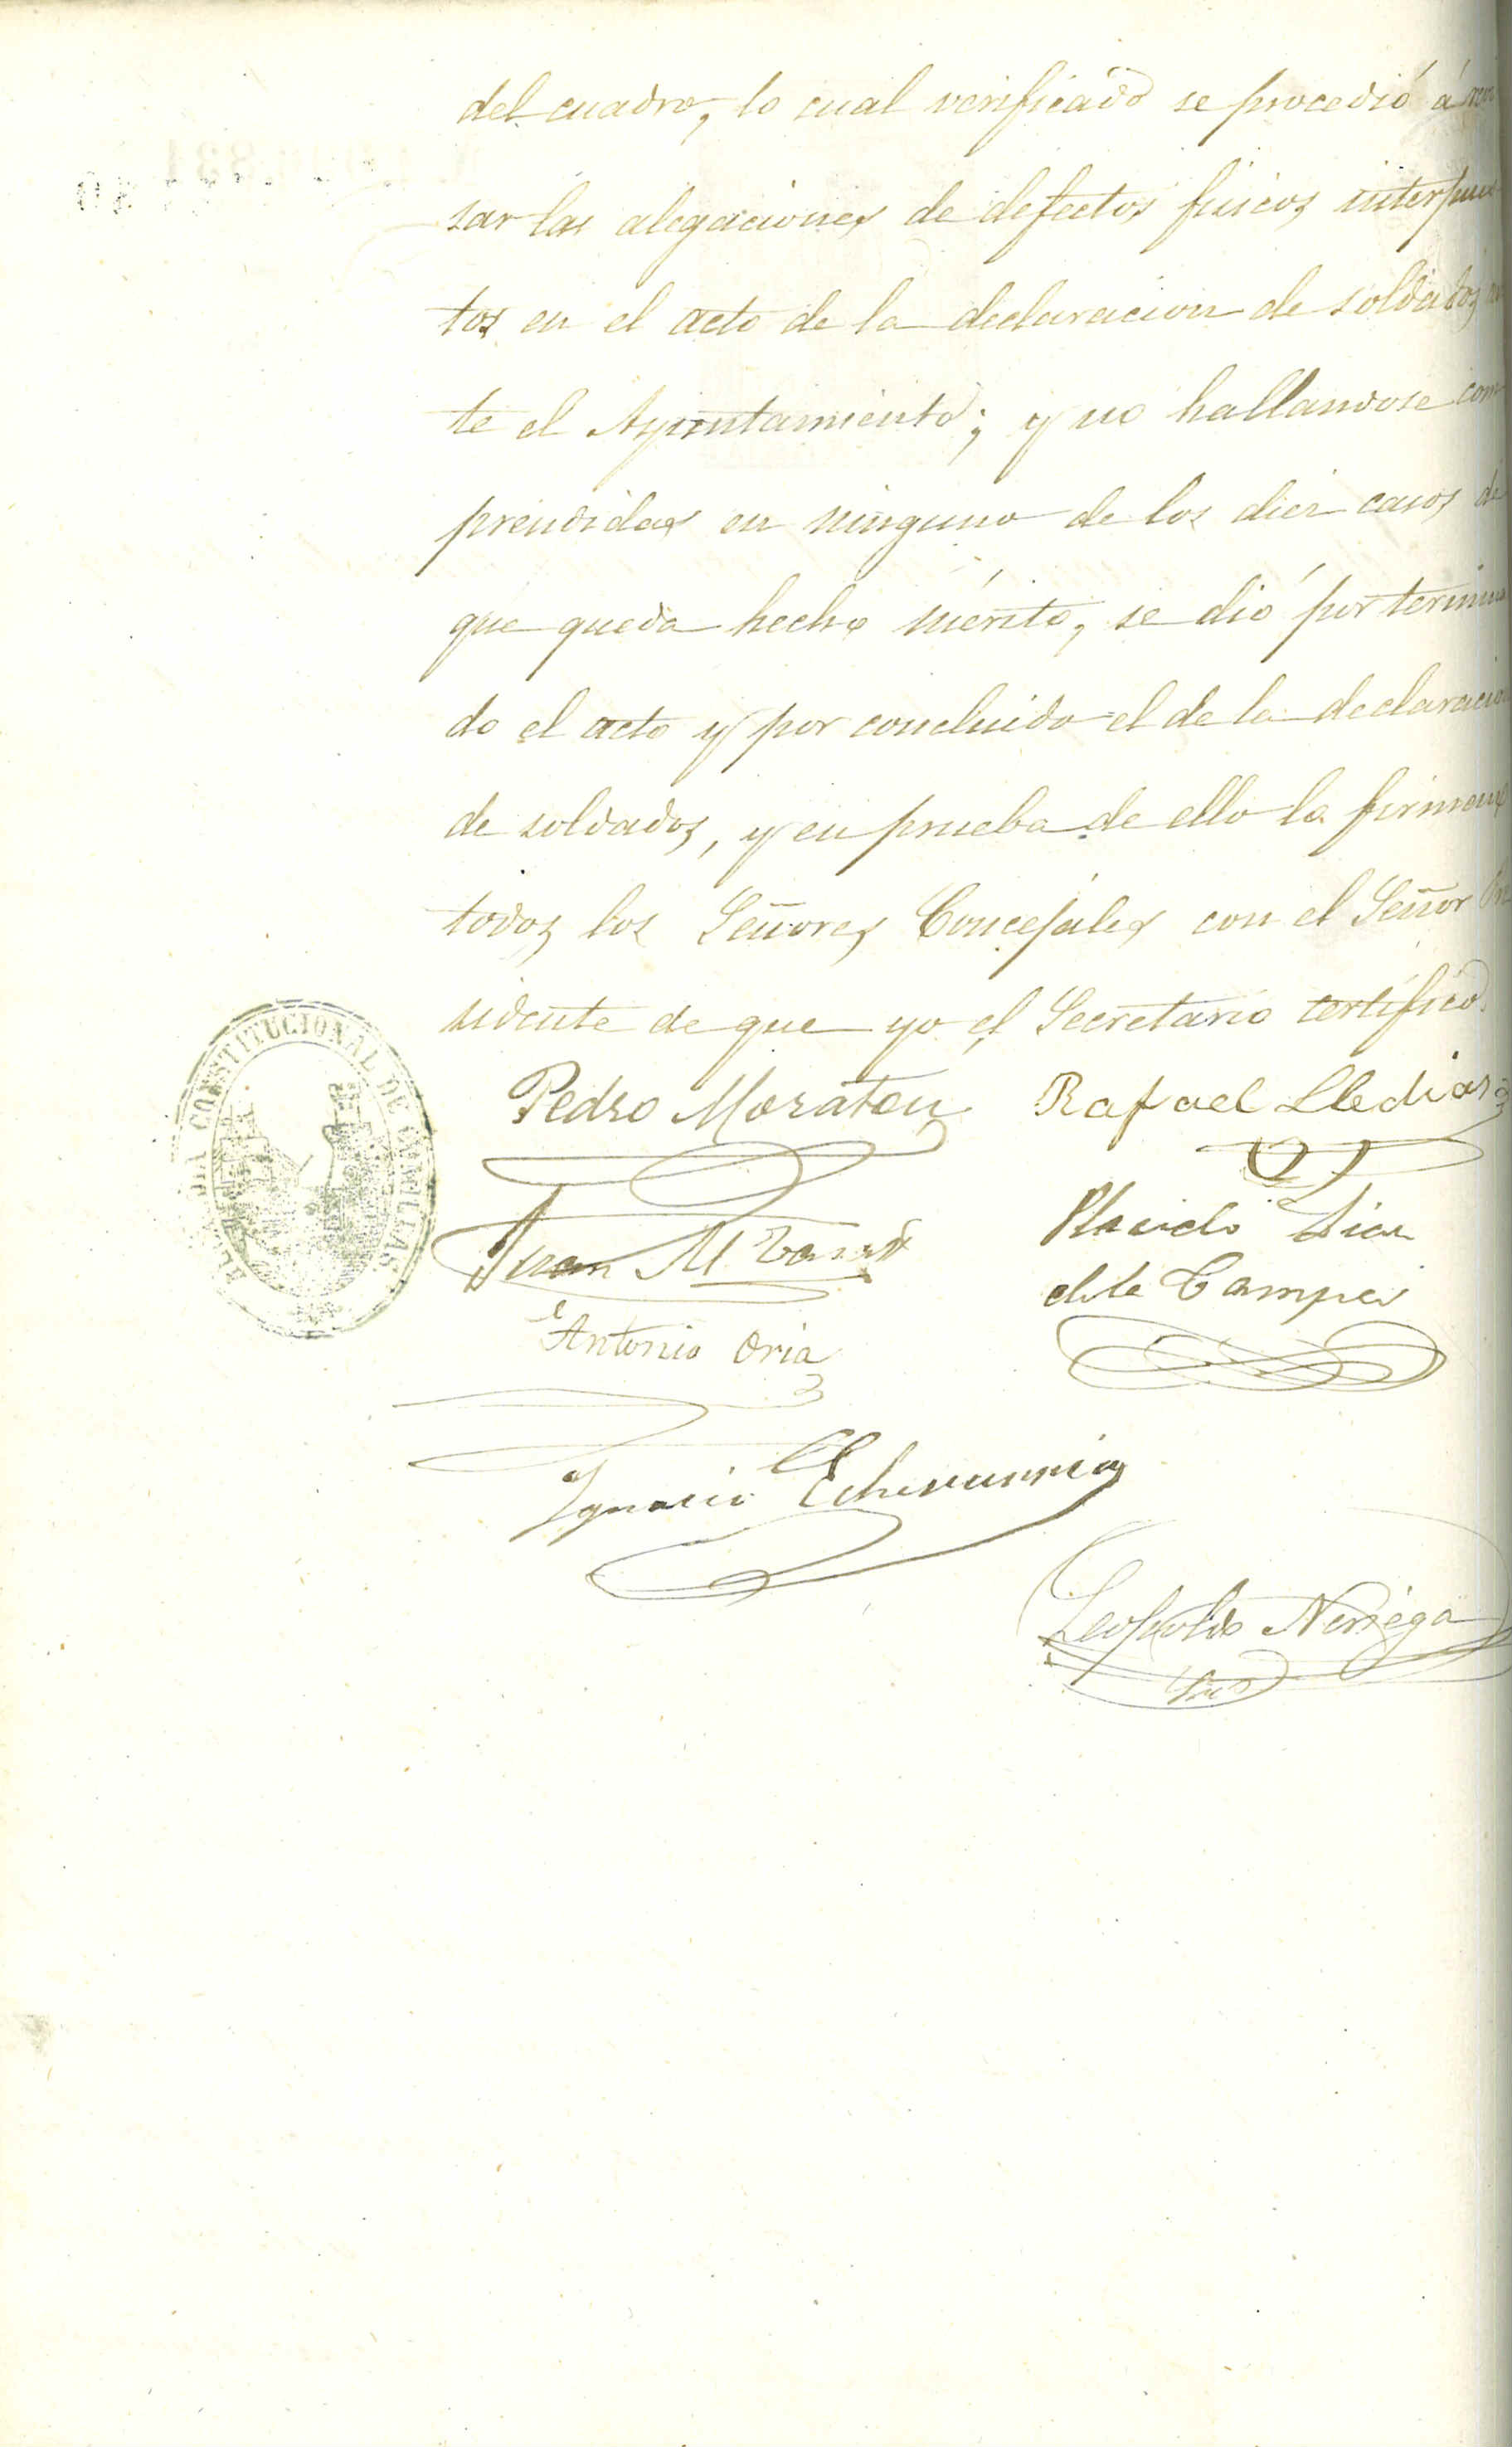 del cuadro, lo cual verificado se procedió á
sar las alegaciones de defectos fisicos interpues
tos en el acto de la declaracion de soldados an
te el Ayuntamiento; y no hallandose com
prendidas en ninguno de los diez casos de
que queda hecho mérito, se dió por termina
do el acto y por concluido el de la declaracion
de soldados, y en prueba de ello la firman
todos los Señores Concejales con el Señor Pre
sidente de que yo el Secretario certifico.
ALCALDIA CONSTITUCIONAL DE COMILLAS
Pedro Moraton Rafael Lledias
Juan M
Placido Dias
de la Campa
Antonio Oria
Ignacio Echevarria
Leopoldo Noriega
Srio